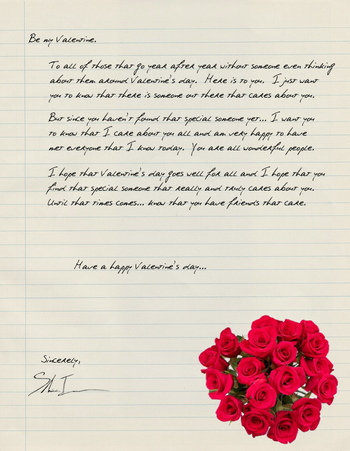 Be my Valentine.
To all of those that go year after year without someone even thinking
about them around Valentine's day. Here is to you. I just want
you to know that there is someone out there that cares about you.
But since you haven't found that special someone yet... I want you
to know that I care about you all and am very happy to have
met everyone that I know today. You are all wonderful people.
I hope that Valentine's day goes well for all and I hope that you
find that special someone that really and truly cares about you.
Until that times comes... know that you have friends that care.
Have a happy Valentine's day...
Sincerely,